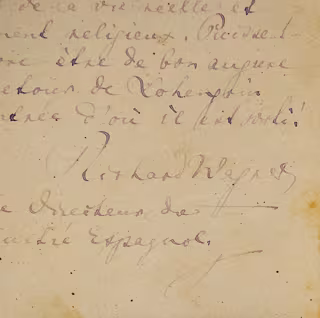 de la vie réelle et
ment religieux. Puissent
être de bon augure
retour de Lohengrin
d'où il est sorti!
Richard Wagner
Directeur du
Espagnol.